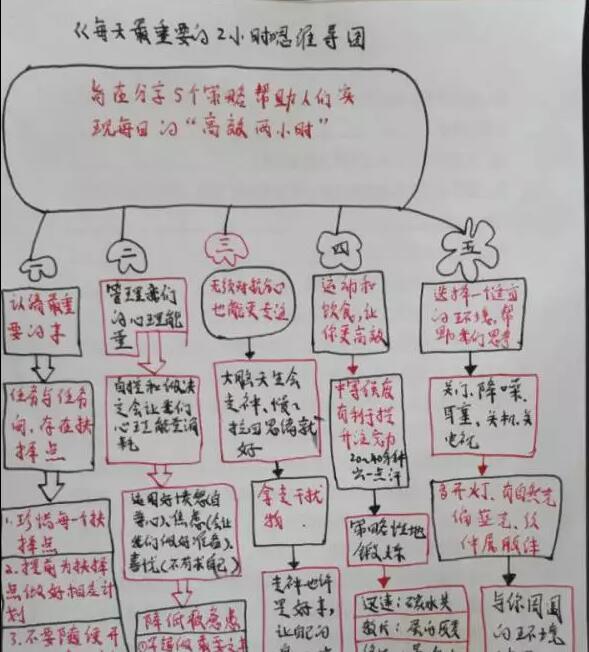 《每天最重要的2小时思维导图
旨在分享5个策略帮助人们实
现每日的“高效两小时”
一
二
三
四
五
认清最重
要的事
管理我们
的心理能
量
无须对抗分心
也能更专注
运动和
饮食,让
你更高效
选择一个适宜
的环境,帮
助我们思考
任务与任务
间,存在抉
择点
自控和做决
定会让我们
心理能量消
耗
大脑天生会
走神、慢慢
拉回思绪就
好
中等强度
有利于提
升注意力
20~40分钟
出一点汗
关门、降噪、
耳塞、关机、关
电视
1.珍惜每一个抉
择点
2.提前为抉择
点做好相应计
划
3.不要随便开
运用好情绪(自
豪心)、焦虑(会让
我们做好准备)、
喜忧(不苛求自己)
降低疲惫感
拿走干扰
物
走神也许
是好事,
让自己的
策略性地
锻炼
多开灯、有自然光
伸展
与你周围
的环境